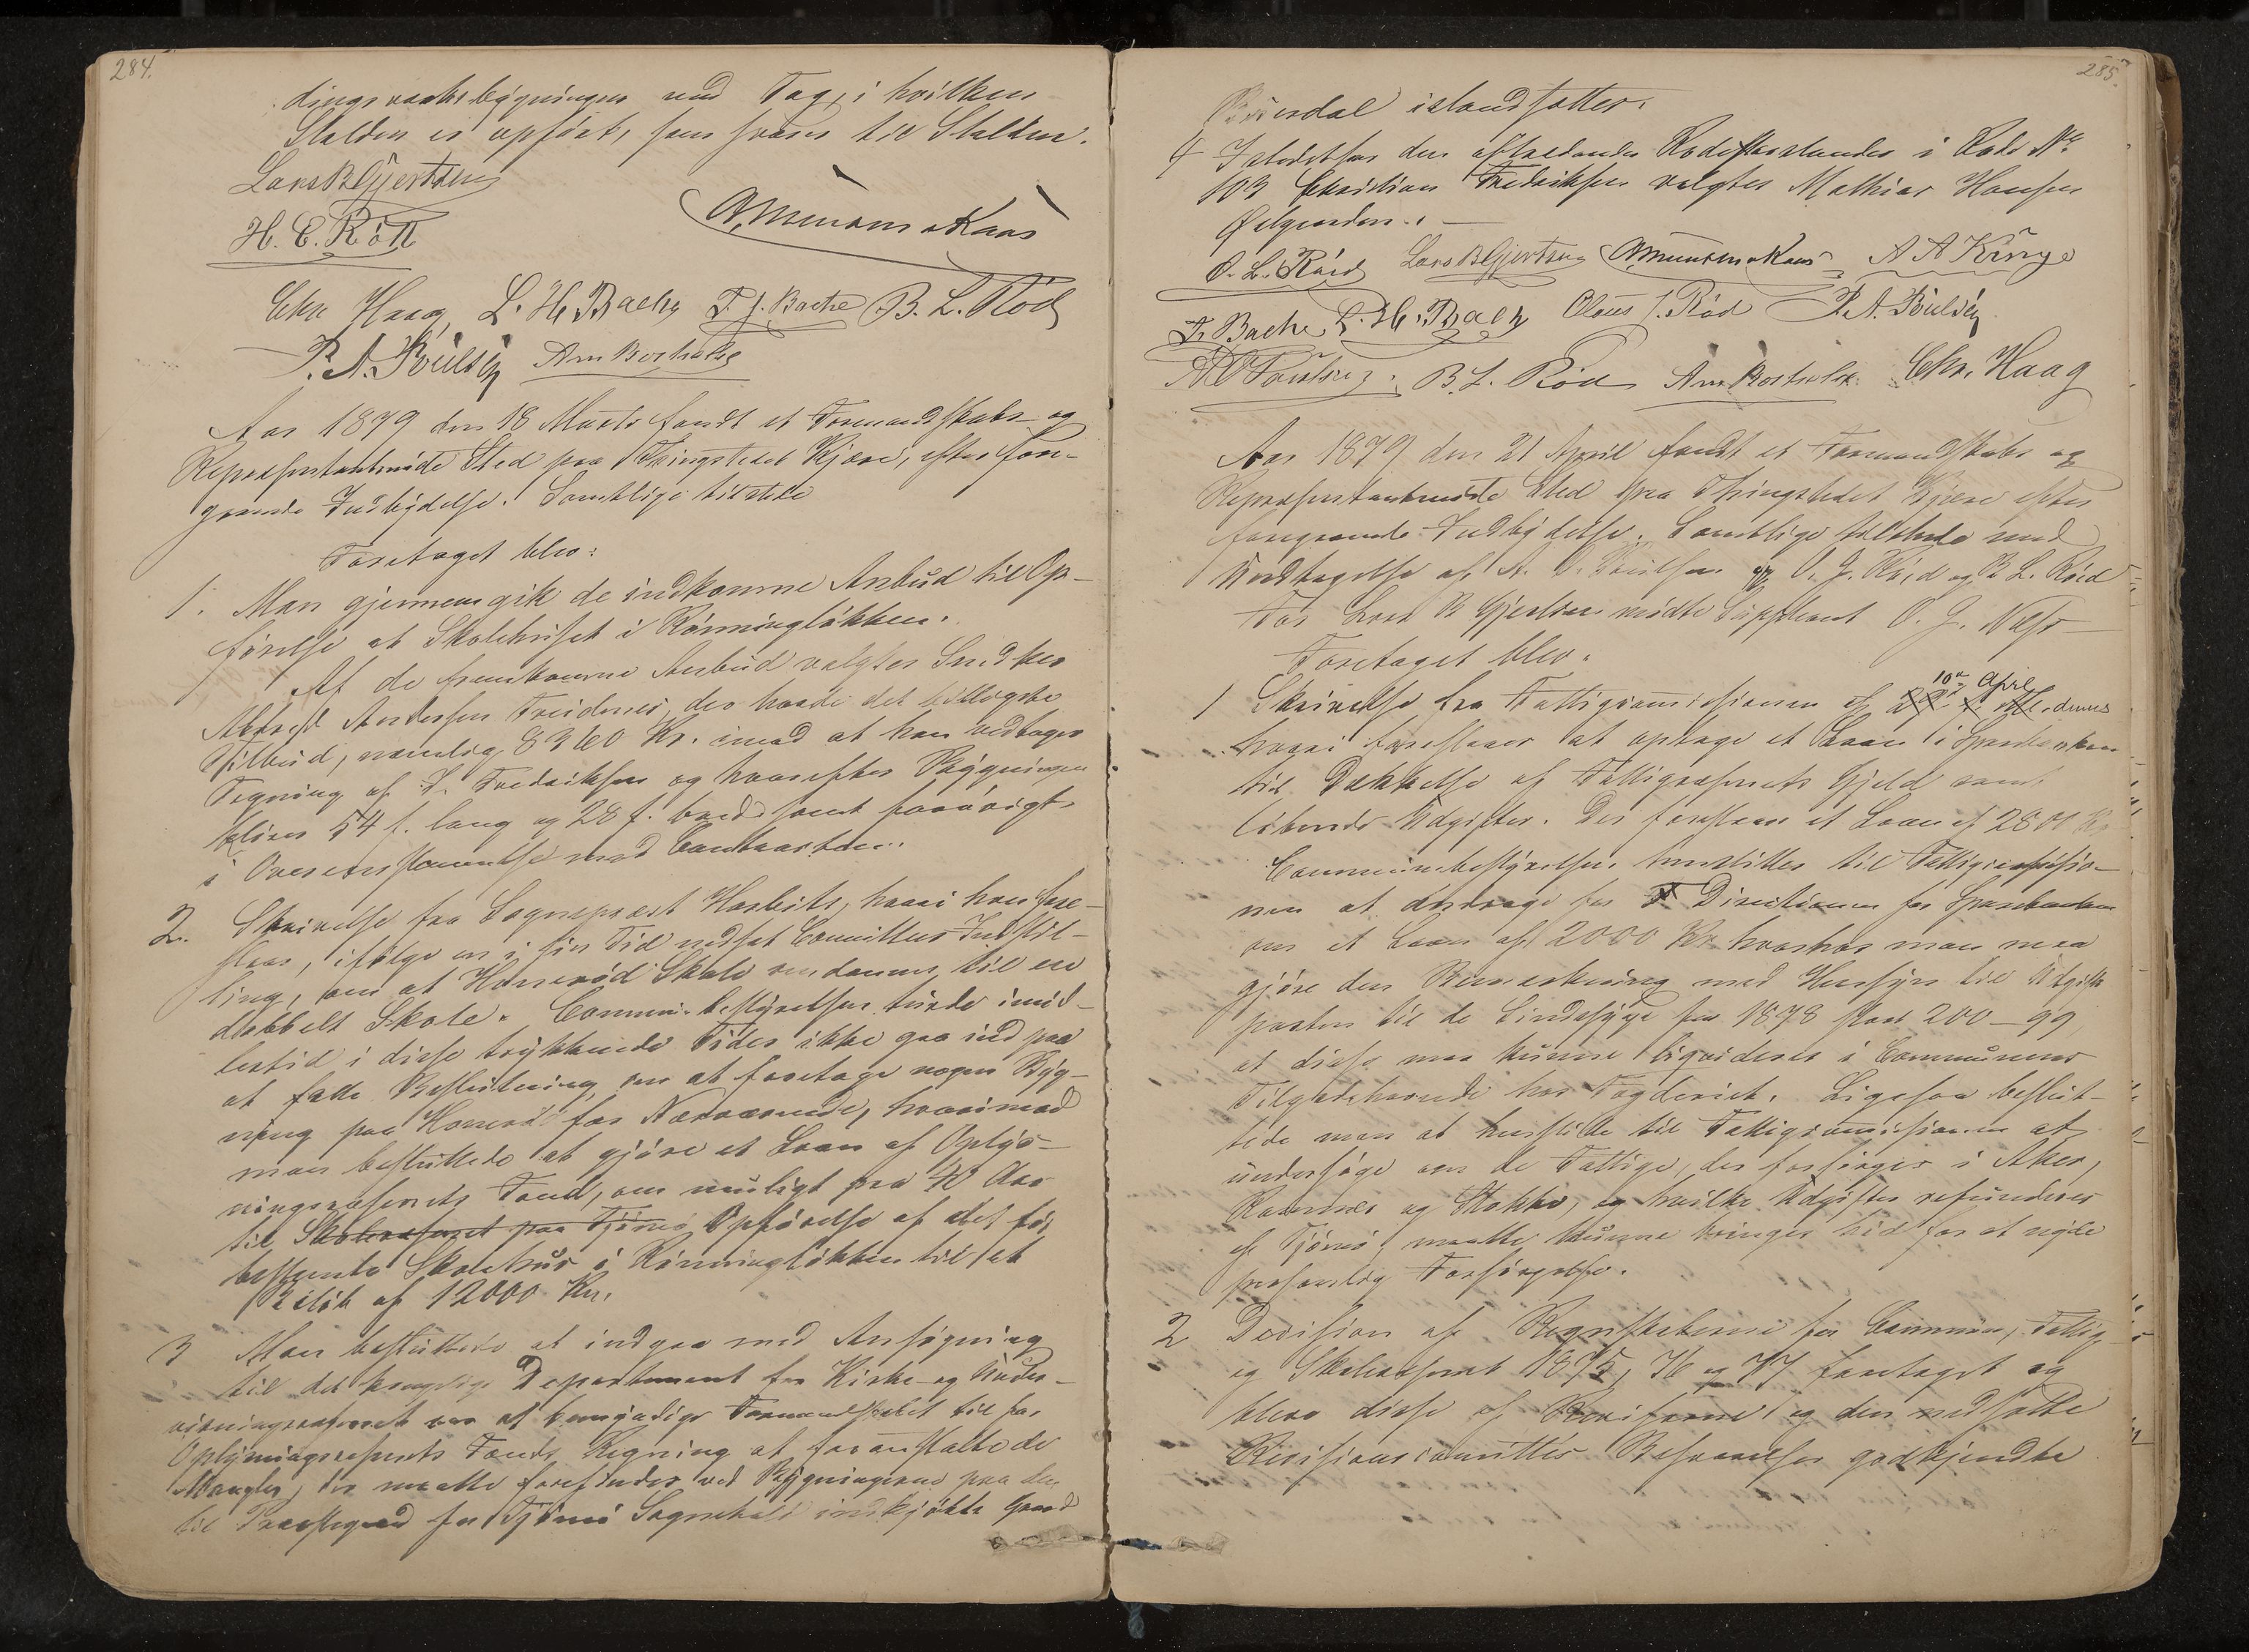 284.
dingsvaabebygningen med Tag, i hvilken
Stalden er opført, som svarer til Stalden.
Lars B Gjertsen
H. C. Röd
Chr Haag, L. H. Bache F. J. Bache B. L. Röd
P. A. Poulsen
Aar 1879 den 18 Marts fandt et Formandskabs- og
Repræsentantmøde Sted paa Thingstedet Kjære, efter fore-
gaaende Indbydelse. Samtlige tilstede
Foretaget blev:
1. Man gjennemgik de indkomne Anbud til Op-
førelse at Skolehuset i Rönningløkken.
Af de fremkomne Anbud valgtes Snedker
Andersen der havde det billigste
Tilbud, nemlig 8360 Kr. imod at han vedtager
Tegning af Fredriksen og hvorefter Bygningen
bliver 54 f. lang og 28 f. bred samt forøvrigt
i Overensstemmelse med Contracten.
2. Skrivelse fra Sognepræst Horbitz, hvori han fore-
slaar, ifølge en i sin Tid nedsat Committees Indstil-
ling, om at Skole omdannes til en
dobbelt Skole. Communebestyrelsen turde imid-
lertid i disse trykkende Tider ikke gaa ind paa
at fatte Beslutning om at foretage nogen Byg-
ning paa for Nærværende, hvorimod
man besluttede at gjøre et Laan af Oplys-
ningsvæsenets Fond, om muligt paa Aar
til Skolevæsenet paa Tjömö Opførelse af det
bestemte Skolehus i Rönningløkken til et
Beløb af 12000 Kr.
3 Man besluttede at indgaa med Ansøgning
til det kongelige Departement for Kirke- og Under-
visningsvæsenet om at bemyndige Formandskabet til for
Oplysningsvæsenets Fonds Regning at foranstalte de
Mangler, der maatte forefindes ved Bygningerne paa den
til Præstegaard for Tjömö Sognekald indkjøbte Gaard
285.
istandsættes.
4 Istedetfor den aftrædende Rodeforstander i Rode No
103 Christian Fredriksen valgtes Mathias Hansen
O. L. Röed Lars B Gjertsen A A Kinge
F. Bache L. H. Bache Olaus J. Röd P. A. Poulsen
B. L. Röd Chr. Haag
Aar 1879 den 21 April fandt et Formandskabs og
Repræsentantmøde Sted paa Thingstedet Kjære efter
foregaaende Indbydelse. Samtlige tilstede med
Undtagelse af A. O. Poulsen og O. J. Röed og B L. Röed
For Lars B Gjertsen mødte Suppleant O. J. Næs
Foretaget blev.
10de April
1 Skrivelse fra Fattigcommissionen af dennes
hvori foreslaaes at optage et Laan i Sparebanken
til Dækkelse af Fattigvæsenets Gjeld samt
løbende Udgifter. Der foreslaaes et Laan af 2800 Kr
Communebestyrelsen henstiller til Fattigcommissio-
nen at andrage for Directionen for Sparebanken
om et Laan af 2000 Kr hvorhos man maa
gjøre den Bemærkning med Hensyn til Udgifts
posten til de Sindssyge for 1878 stor 200-99,
at disse maa kunne liqvideres i Communens
Tilgodehavende hos Fogderiet. Ligesaa beslut-
tede man at henstille til Fattigcommissionen at
undersøge om de Fattige, der forsørges i Aker,
Ramnæs og Stokke, og hvilke Udgifter refunderes
af Tjömö, maatte kunne bringes hid for at nyde
personlig Forsørgelse.
2 Decision af Regnskaberne for Commune, Fattig-
og Skolevæsenet 1875, 76 og 77 foretaget og
blev disse af Revisorerne og den nedsatte
Revisionscomittes Besvarelser godkjendte